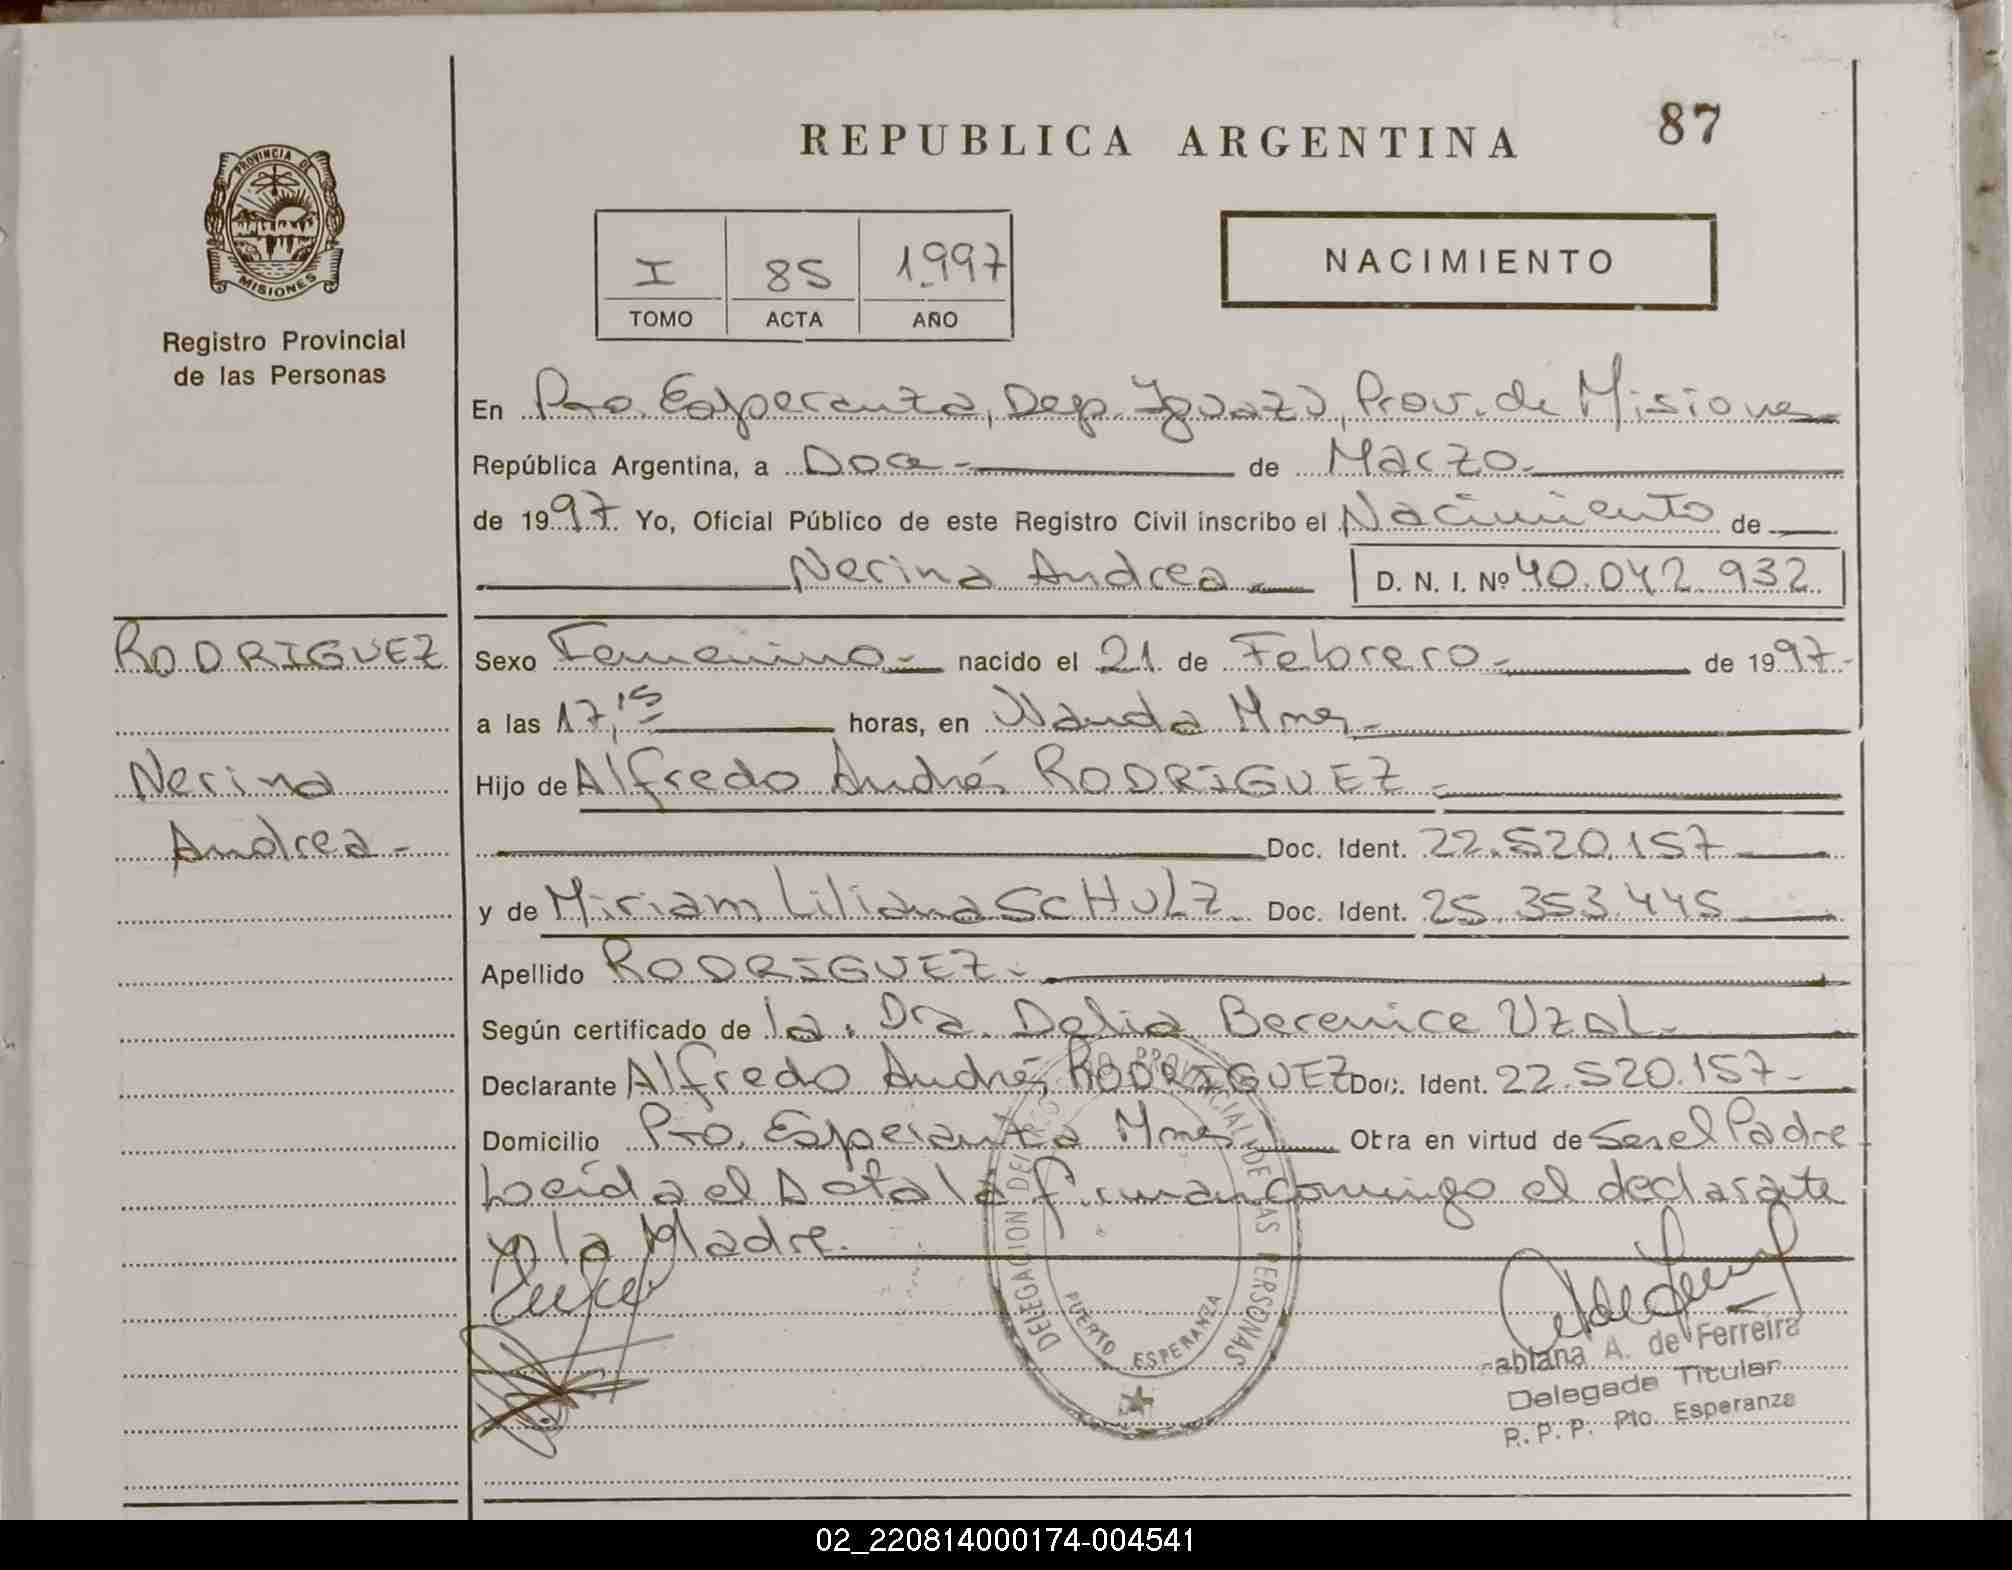 REPUBLICA ARGENTINA
87
PROVINCIA DE
MISIONES
Registro Provincial
de las Personas
I 85 1.997
TOMO ACTA AÑO
NACIMIENTO
En Pto. Esperanza, Dep. Iguazú, Prov. de Misiones
República Argentina, a Doce - de Marzo.
de 1997. Yo, Oficial Público de este Registro Civil inscribo el Nacimiento de
Nerina Andrea - D. N. I. Nº 40.042.932
RODRIGUEZ
Nerina
Andrea -
Sexo Femenino - nacido el 21 de Febrero - de 1997-
a las 17,15 horas, en Wanda Mnes -
Hijo de Alfredo Andrés RODRIGUEZ -
Doc. Ident. 22.520.157
y de Miriam Liliana SCHULZ Doc. Ident. 25.353.445
Apellido RODRIGUEZ -
Según certificado de la. Dra. Delia Berenice UZAL -
Declarante Alfredo Andrés RODRIGUEZ Doc. Ident. 22.520.157-
Domicilio Pto. Esperanza Mnes Obra en virtud de Ser el Padre
Leída el Acta la firman conmigo el declarante
y la Madre.
DELEGACION DEL PROVINCIAL DE LAS PERSONAS
PUERTO ESPERANZA
abiana A. de Ferreira
Delegada Titular
R. P. P. Pto. Esperanza
02_220814000174-004541